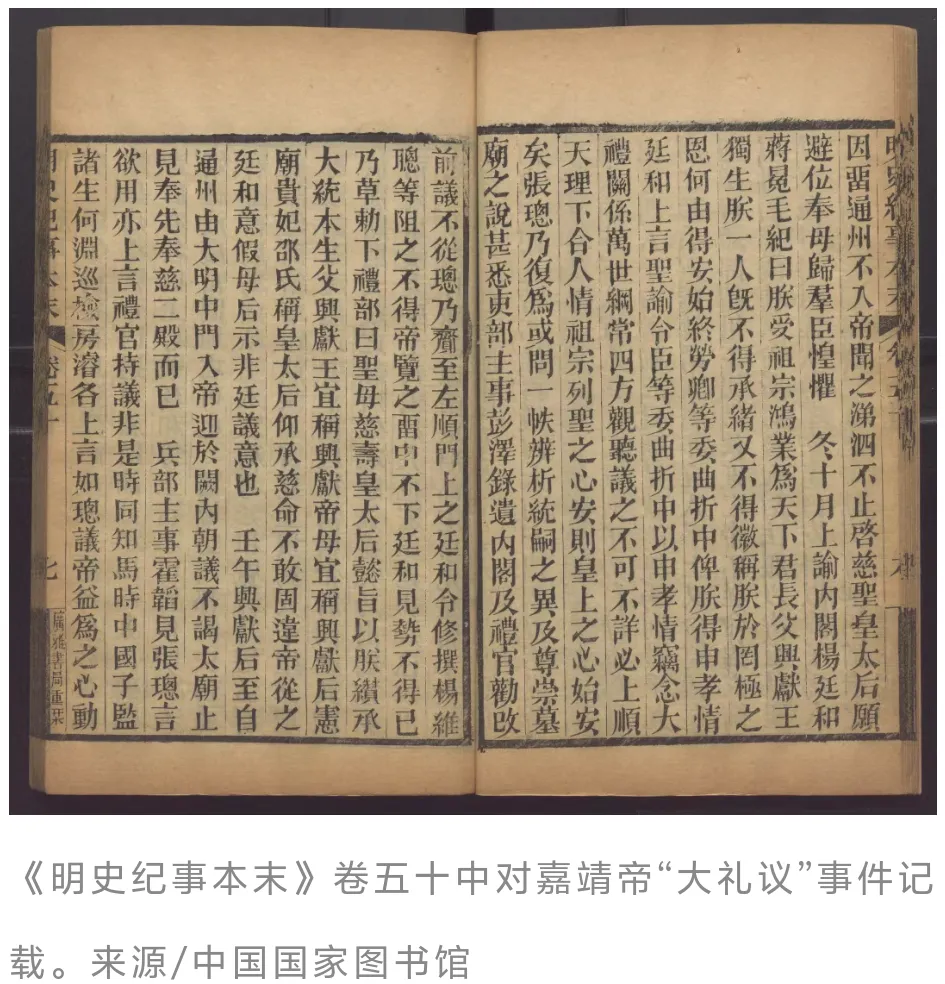 因畱通州不入帝聞之涕泗不止啓慈聖皇太后願
避位奉母歸羣臣惶懼　冬十月上諭內閣楊廷和
蔣冕毛紀曰朕受祖宗鴻業爲天下君長父興獻王
獨生朕一人旣不得承緒又不得徽稱朕於罔極之
恩何由得安始終勞卿等委曲折中俾朕得申孝情
廷和上言聖諭令臣等委曲折中以申孝情竊念大
禮關係萬世綱常四方觀聽議之不可不詳必上順
天理下合人情祖宗列聖之心安則皇上之心始安
矣張璁乃復爲或問一帙辨析統嗣之異及尊崇墓
廟之說甚悉吏部主事彭澤錄遺內閣及禮官勸改
前議不從璁乃齎至左順門上之廷和令修撰楊維
聰等阻之不得帝覽之畱中不下廷和見勢不得已
乃草勅下禮部曰聖母慈壽皇太后懿旨以朕纘承
大統本生父興獻王宜稱興獻帝母宜稱興獻后憲
廟貴妃邵氏稱皇太后仰承慈命不敢固違帝從之
廷和意假母后示非廷議意也　壬午興獻后至自
通州由大明中門入帝迎於闕內朝議不謁太廟止
見奉先奉慈二殿而已　兵部主事霍韜見張璁言
欲用亦上言禮官持議非是時同知馬時中國子監
諸生何淵巡檢房濬各上言如璁議帝益爲之心動
明史紀事本末　卷五十
七
廣雅書局重栞
《明史纪事本末》卷五十中对嘉靖帝“大礼议”事件记
载。来源/中国国家图书馆